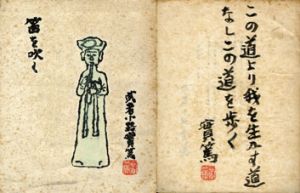 この道より我を生かす道
なしこの道を歩く
實篤
武者小路實篤
笛を吹く